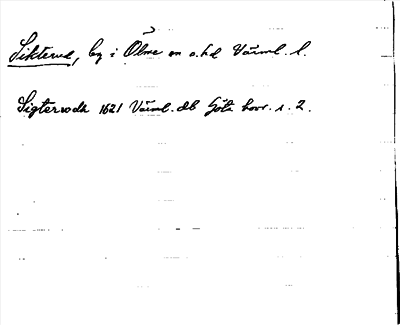 Sikterud, by i Ölme sn o. hd Värml. l.
Sigterrodh 1621 Värml. db Göta hovr. s. 2.